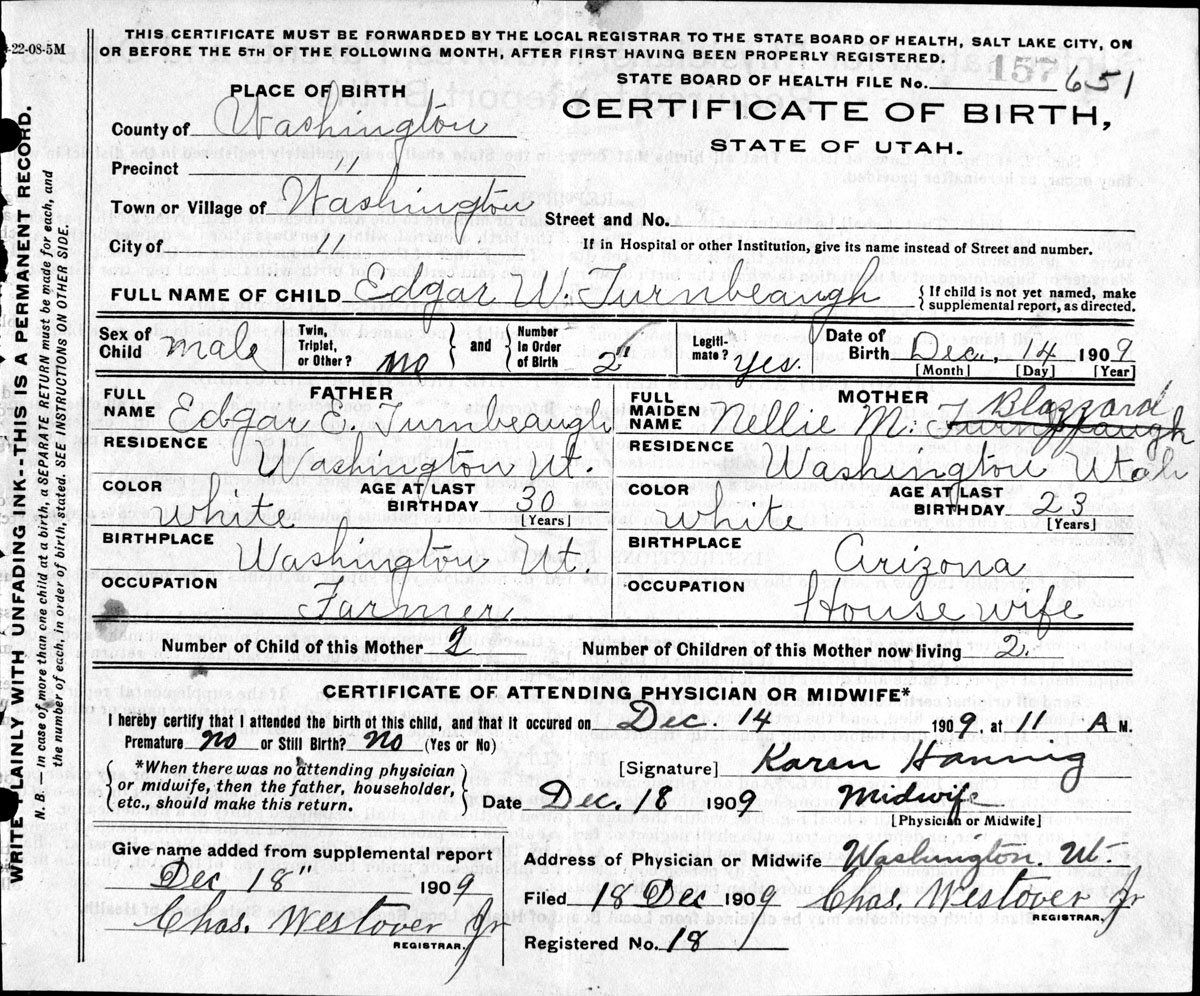 -22-08-5M
THIS CERTIFICATE MUST BE FORWARDED BY THE LOCAL REGISTRAR TO THE STATE BOARD OF HEALTH, SALT LAKE CITY, ON
OR BEFORE THE 5TH OF THE FOLLOWING MONTH, AFTER FIRST HAVING BEEN PROPERLY REGISTERED.
STATE BOARD OF HEALTH FILE No. 157 651
PLACE OF BIRTH
CERTIFICATE OF BIRTH,
STATE OF UTAH.
County of Washington
Precinct "
Town or Village of Washington Street and No.
City of " If in Hospital or other Institution, give its name instead of Street and number.
FULL NAME OF CHILD Edgar W. Turnbeaugh { If child is not yet named, make supplemental report, as directed.
Sex of Child male Twin, Triplet, or Other? no } and { Number in Order of Birth 2" Legitimate? yes. Date of Birth Dec. 14 1909
[Month] [Day] [Year]
FATHER
FULL NAME Edgar E. Turnbeaugh
RESIDENCE Washington Ut.
COLOR White AGE AT LAST BIRTHDAY 30 [Years]
BIRTHPLACE Washington Ut.
OCCUPATION Farmer
MOTHER
FULL MAIDEN NAME Nellie M. Turnbeaugh Blazzard
RESIDENCE Washington Utah
COLOR White AGE AT LAST BIRTHDAY 23 [Years]
BIRTHPLACE Arizona
OCCUPATION House wife
Number of Child of this Mother 2 Number of Children of this Mother now living 2.
CERTIFICATE OF ATTENDING PHYSICIAN OR MIDWIFE*
I hereby certify that I attended the birth of this child, and that it occured on Dec. 14 1909, at 11 A M.
Premature no or Still Birth? No (Yes or No)
{ *When there was no attending physician
or midwife, then the father, householder,
etc., should make this return. }
[Signature] Karen Hannig
Date Dec. 18 1909 Midwife
[Physician or Midwife]
Give name added from supplemental report
Dec 18" 1909
Chas. Westover Jr
REGISTRAR.
Address of Physician or Midwife Washington. Ut.
Filed 18 Dec 1909 Chas. Westover Jr
REGISTRAR.
Registered No. 18
WRITE PLAINLY WITH UNFADING INK--THIS IS A PERMANENT RECORD.
N. B.— In case of more than one child at a birth, a SEPARATE RETURN must be made for each, and
the number of each, in order of birth, stated. SEE INSTRUCTIONS ON OTHER SIDE.